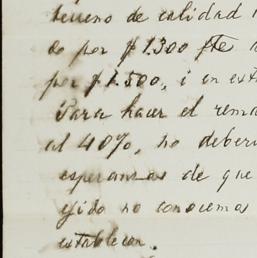 terreno de calidad
do por $1.300 fte
por $1.500, i en ext
Para hacer el rema
al 40%, no deberi
esperanzas de que
yido no conocemos
establecen.